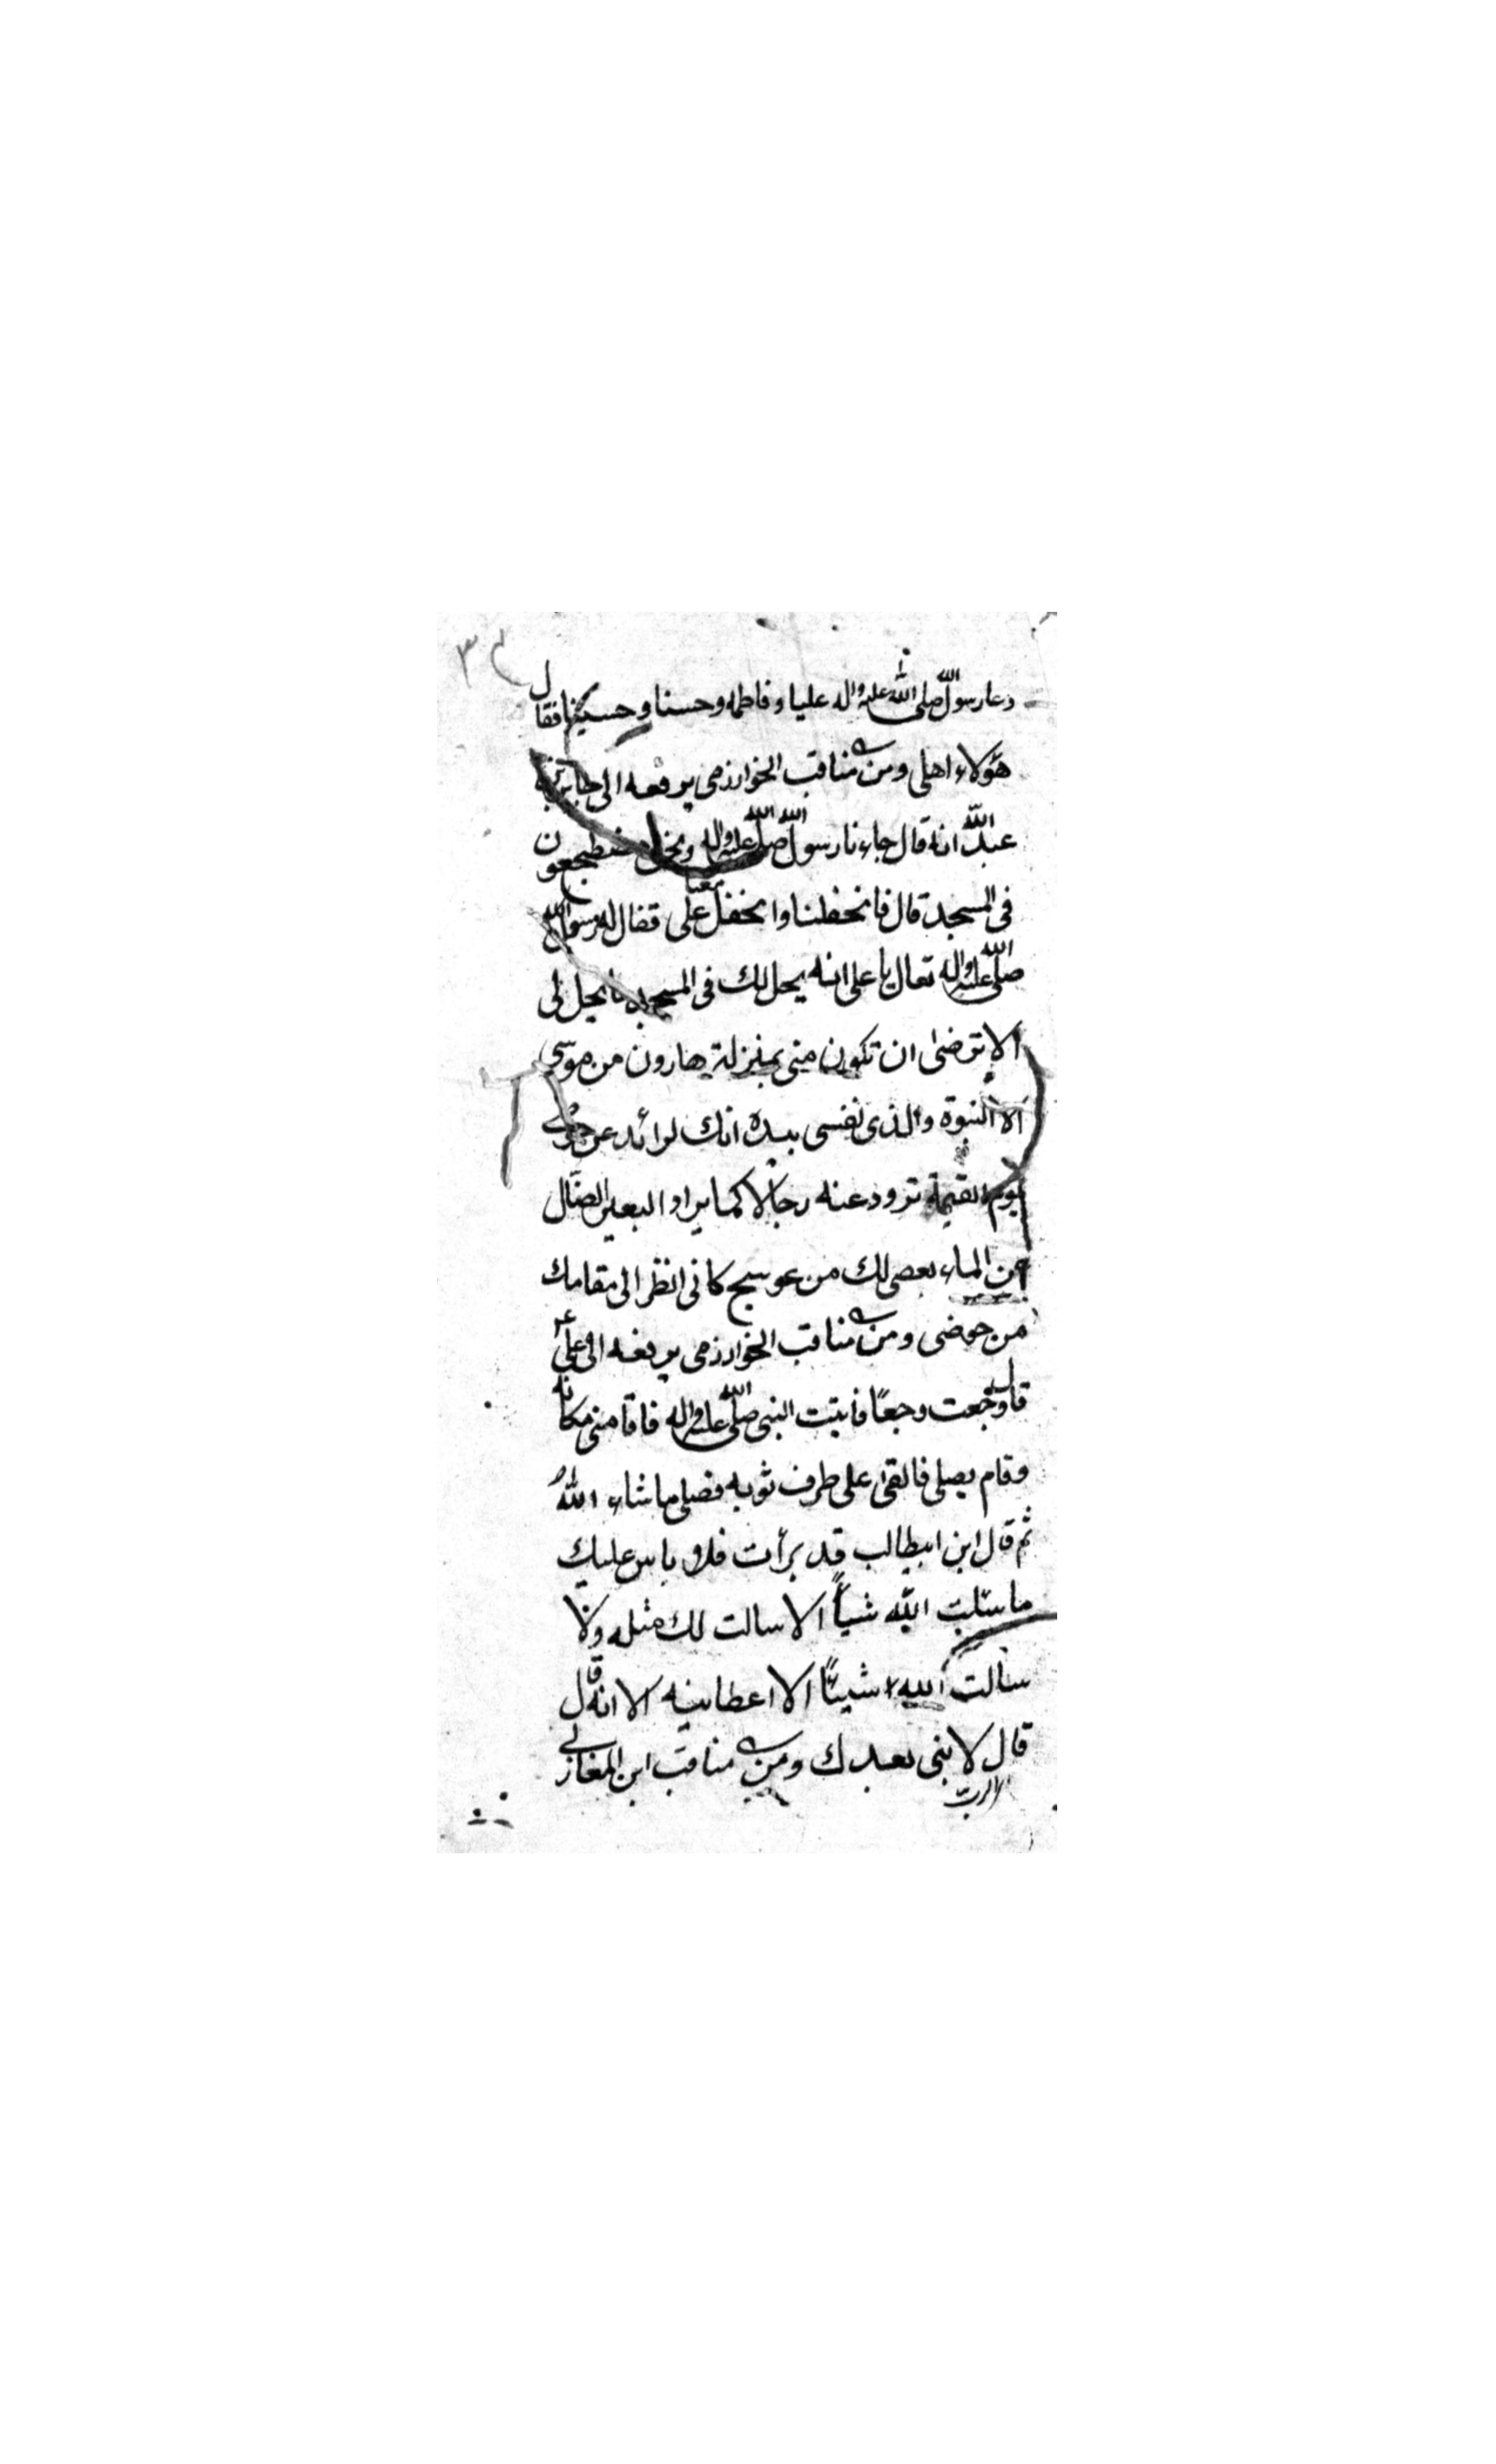 دعا رسول الله صلى الله عليه واله عليا وفاطمه وحسنا وحسينا فقال
هؤلاء اهلى ومن مناقب الخوارزمى يرفعه الى جابر بن
عبد الله انه قال جاءنا رسول الله صلى الله عليه واله ونحن مضطجعون
فى المسجد قال فانحفلنا وانحفل معنا على فقال له رسول الله
صلى الله عليه واله تعال يا على انه يحل لك فى المسجد ما يحل لى
الا ترضى ان تكون منى بمنزلة هارون من موسى
الا النبوة والذى نفسى بيده انك لرائد عن حوضى
يوم القيمة ترود عنه رجالا كما يراد البعير الضال
عن الماء بعصى لك من عوسج كانى انظر الى مقامك
من حوضى ومن مناقب الخوارزمى يرفعه الى على ع
قال وجعت وجعًا فأتيت النبى صلى الله عليه واله فاقامنى مكانه
وقام يصلى فالقى على طرف ثوبه فصلى ما شاء الله
ثم قال ابن ابيطالب قد برأت فلا باس عليك
ما سئلت الله شيأً الا سالت لك مثله ولا
سالت الله شيئًا الا اعطانيه الا انه قال
قال لا نبى بعدك ومن مناقب ابن المغازلى
الرب